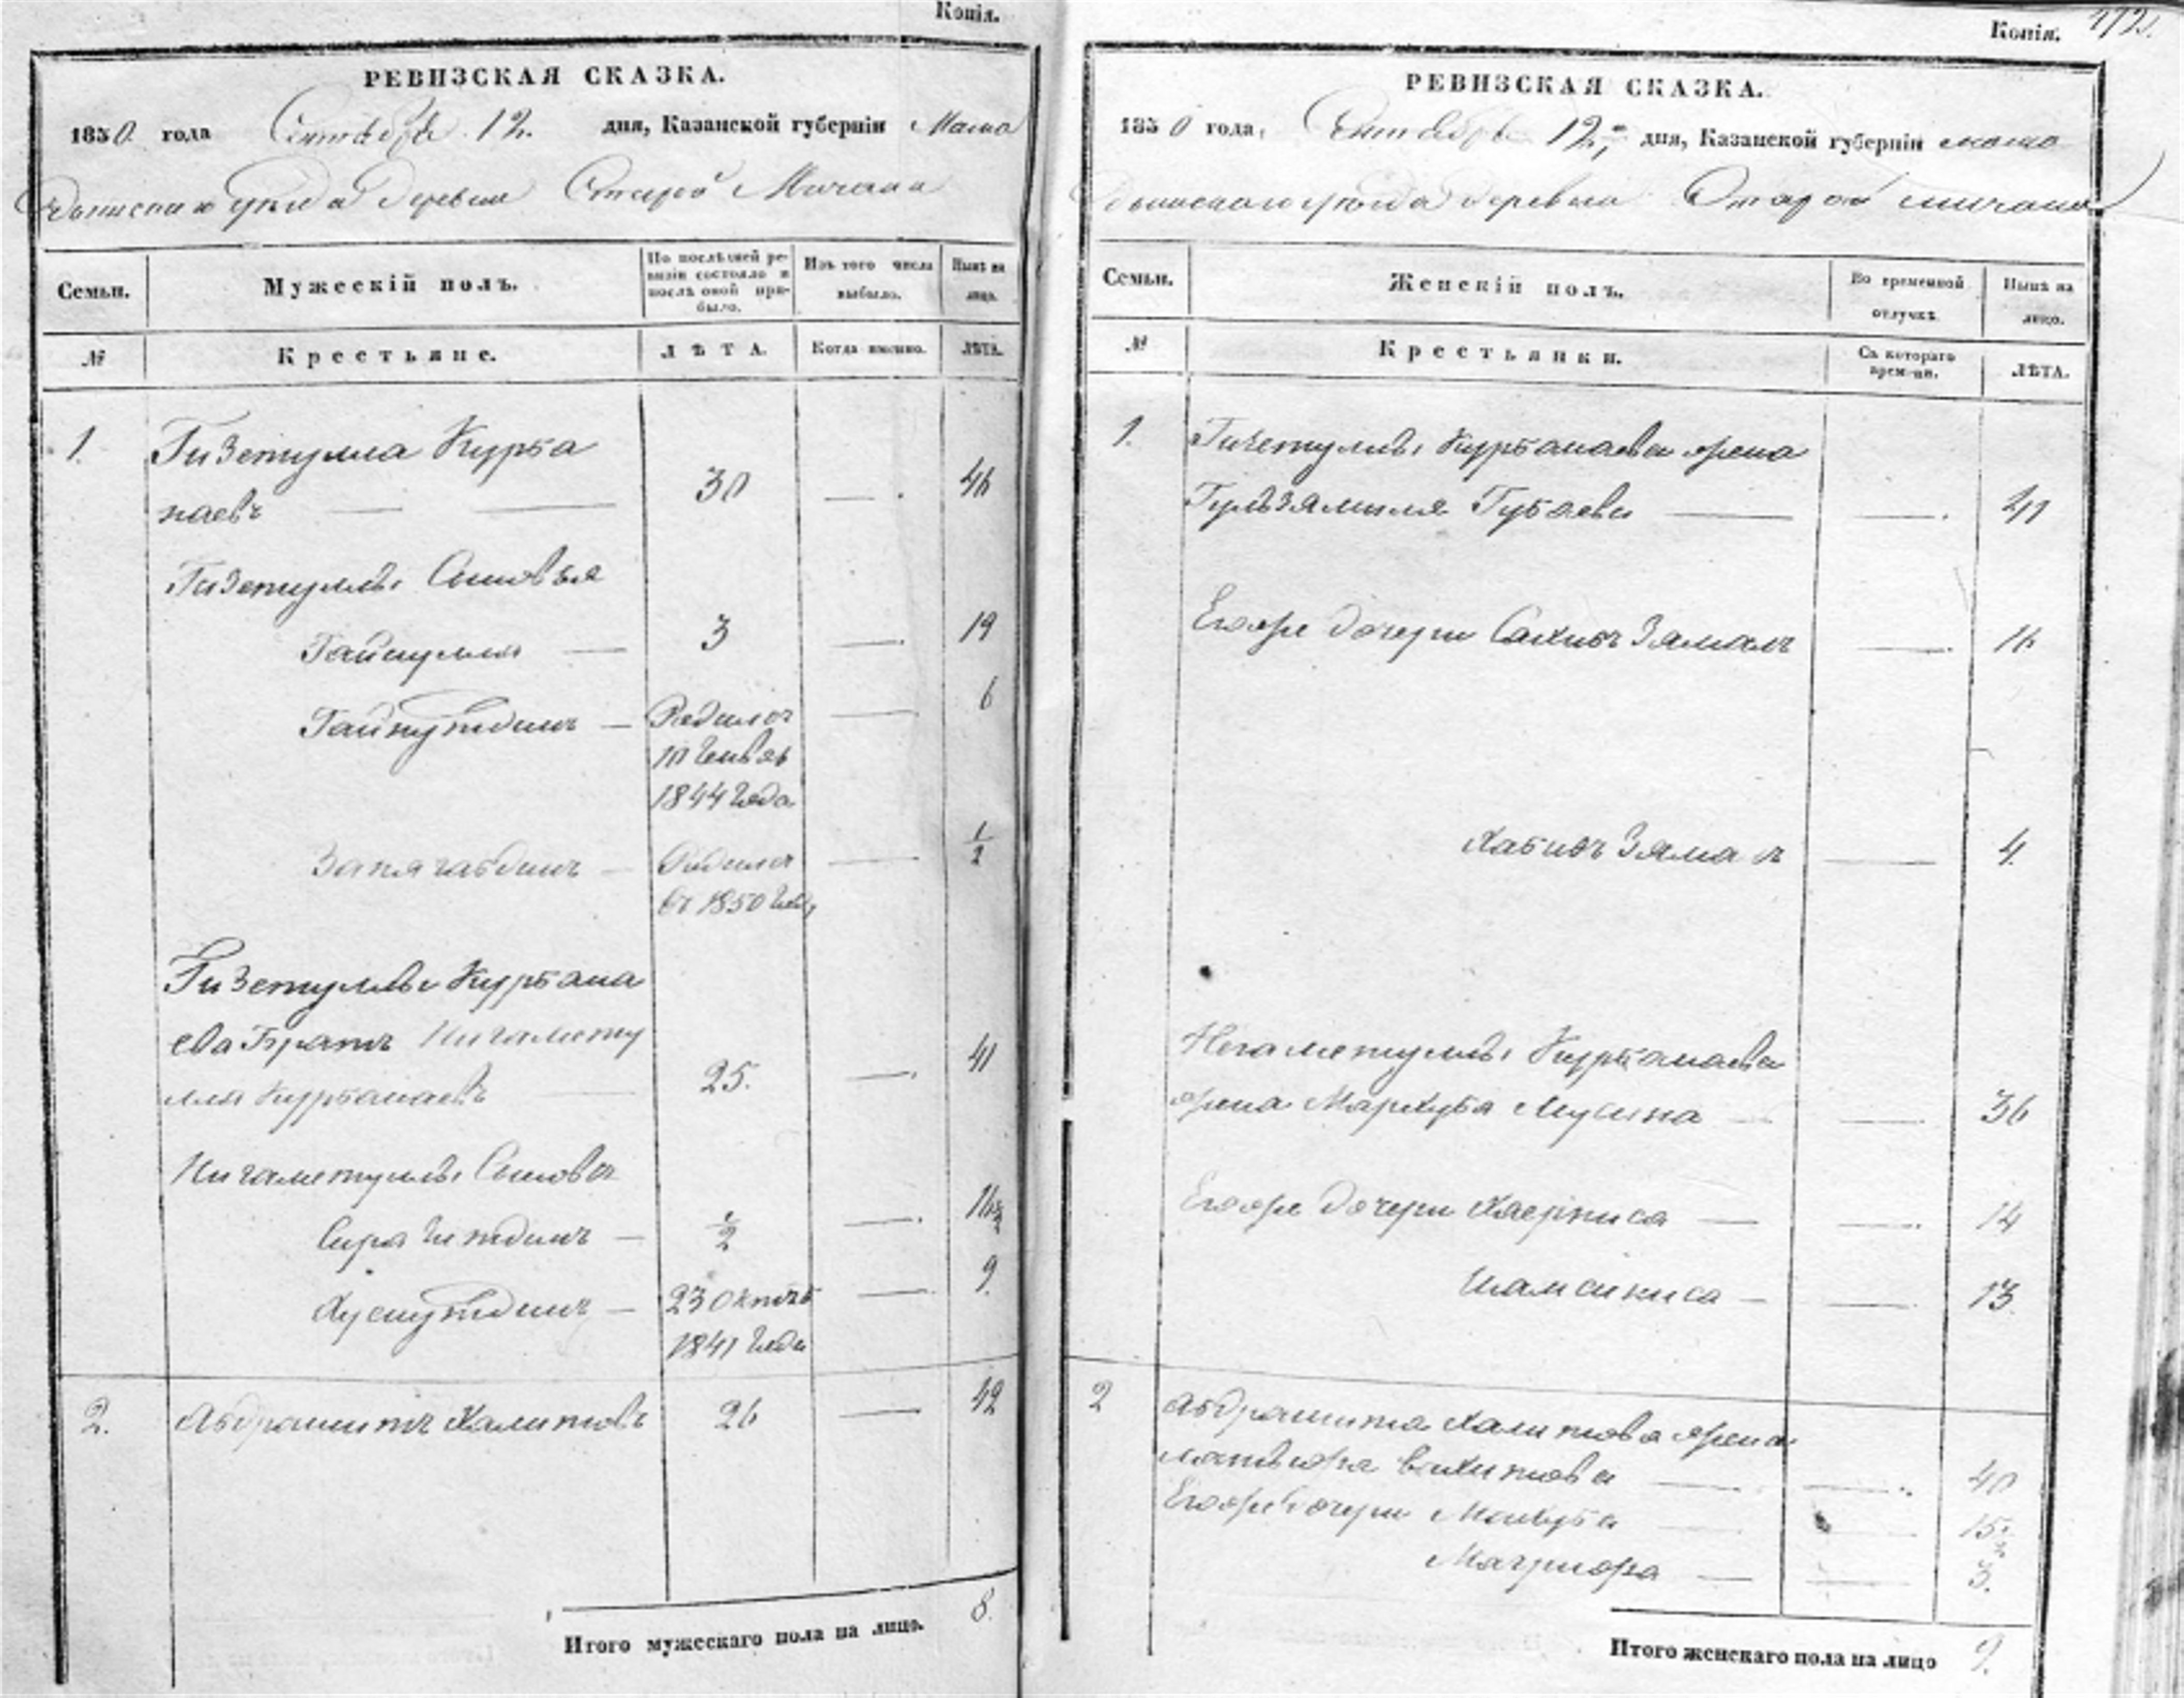 Копія.
РЕВИЗСКАЯ СКАЗКА.
1850 года Сентября 12. дня, Казанской губерніи Мама
дышскаго уезда деревни Старой Мичана
Семьи.
Мужескій полъ.
По послѣдней ре-
визіи состояло и
послѣ оной при-
было.
Изъ того числа
выбыло.
Нынѣ на
лицо.
№
Крестьяне.
ЛѢТА.
Когда именно.
ЛѢТА.
1.
Гизетулла Курба
наевъ
30
46
Гизетуллы Сыновья
Гайнулла
3
19
Гайнутдинъ
Родился
10 Генваря
1844 года
6
Родился
въ 1850 году
1/2
Гизетуллы Курбана
ева Братъ Нигамету
лла Курбанаевъ
25.
41
Нигаметуллы Сыновья
Сиразитдинъ
1/2
16 1/2
Хуснутдинъ
23 Октяб
1841 года
9.
2.
Абдрашитъ Халитовъ
26
42
Итого мужескаго пола на лицо.
8.
Копія.
РЕВИЗСКАЯ СКАЗКА.
1850 года, Сентября 12, дня, Казанской губерніи Мама
дышскаго уезда деревни Старой Мичана
Семьи.
Женскій полъ.
Во временной
отлучкѣ
Нынѣ на
лицо.
№
Крестьянки.
Съ котораго
времени.
ЛѢТА.
1.
Гизетуллы Курбанаева жена
Гульзямиля Губаева
41
Егоже дочери Сахибъ Зямалъ
16
Хабибъ Зямалъ
4.
Негаметуллы Курбанаева
жена Мархуба Мусина
36
Егоже дочери Хаерниса
14
Шамсиниса
13.
2
Абдрашита Халитова жена
Вахитова
40
Егоже дочери Махуба
15 1/2
3.
Итого женскаго пола на лицо
9.